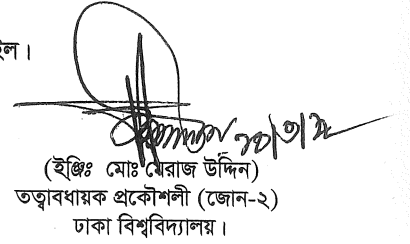 ইল।
(ইঞ্জিঃ মোঃ মেরাজ উদ্দিন)
তত্বাবধায়ক প্রকৌশলী (জোন-২)
ঢাকা বিশ্ববিদ্যালয়।